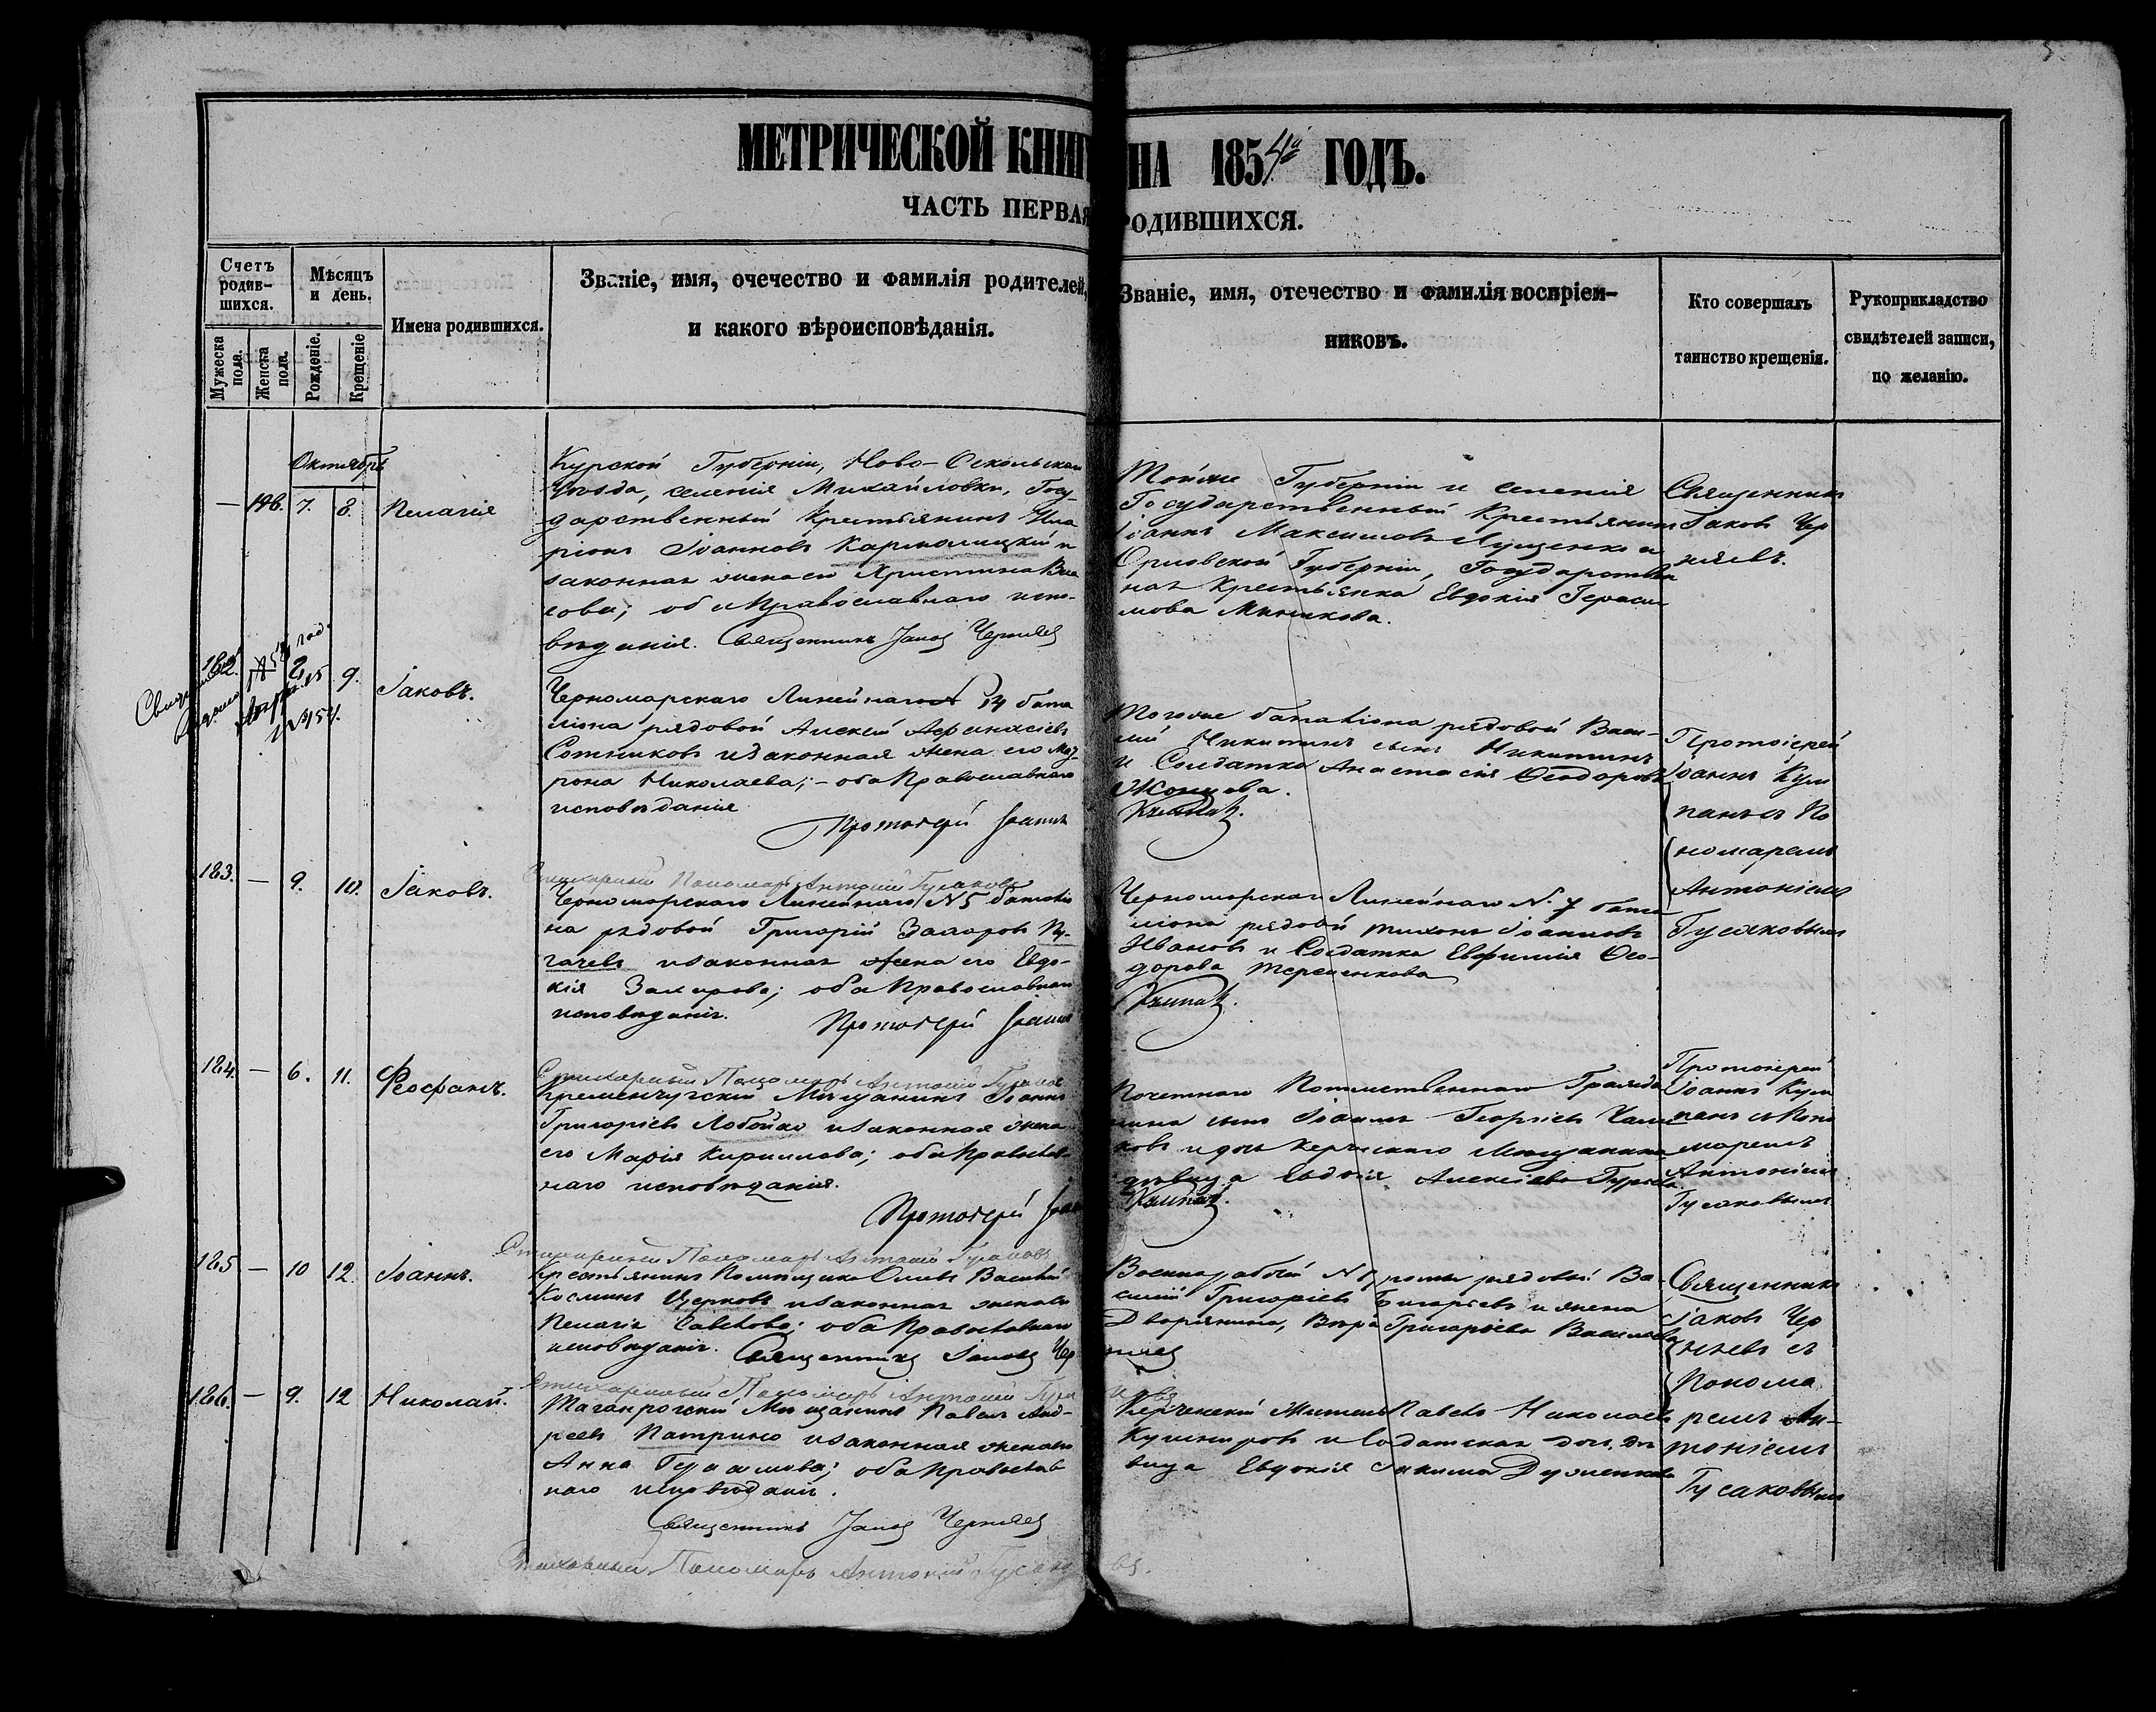 МЕТРИЧЕСКОЙ КНИГ НА 1854й ГОДЪ.
ЧАСТЬ ПЕРВАЯ РОДИВШИХСЯ.
Счетъ родив-шихся.
Мужеска пола.
Женска пола.
Мѣсяцъ и день.
Рожденіе.
Крещеніе
Имена родившихся.
Званіе, имя, очечество и фамилія родителей,
и какого вѣроисповѣданія.
Званіе, имя, отечество и фамилія воспріем-
никовъ.
Кто совершалъ
таинство крещенія.
Рукоприкладство
свидѣтелей записи,
по желанію.
Октябрь
— 146. 7. 8. Пелагія
Курской Губерніи, Ново-Оскольскаго
Уѣзда, селенія Михайловки, Госу-
дарственный Крестьянинъ Ила
ріонъ Іоанновъ Кармалицкій и
законная жена его Христина Вла
сова; оба Православнаго испо-
вѣданія. Священникъ Іаковъ Черняев
Тойже Губерніи и селенія
Государственный Крестьянинъ
Іоаннъ Максимовъ Лущенко и
Орловской Губерніи, Государствен
ная Крестьянка Евдокія Гераси
мова Миникова.
Священникъ
Іаковъ Чер
няевъ.
182. 2 9. Іаковъ.
Черноморскаго Линейнаго № 14 бата
ліона рядовой Алексѣй Афанасіевъ
Сотниковъ и законная жена его Мат
рона Николаева; – оба Православнаго
исповѣданія
Протоіерей Іоаннъ
Тогоже баталіона рядовой Васи-
лій Никитинъ сынъ Никитинъ
и Солдатка Анастасія Ѳеодорова
Кулпан.
Протоіерей
Іоаннъ Кул
панъ съ По
номаремъ
Антоніемъ
Гусаковымъ
183. — 9. 10. Іаковъ.
Стихарный Пономарь Антоній Гусаковъ
Черноморскаго Линейнаго № 5 баталіо
на рядовой Григорій Захаровъ Пу-
гачевъ и законная жена его Евдо-
кія Захарова; оба Православнаго
исповѣданія.
Протоіерей Іоаннъ
Черноморскаго Линейнаго № 7 бата
ліона рядовой Тихонъ Іоанновъ
Ивановъ и Солдатка Евфимія Ѳео-
дорова Терещенкова
Кулпан.
184. — 6. 11. Ѳеофанъ.
Стихарный Пономарь Антоній Гусаковъ
Кременчугскій Мѣщанинъ Іоаннъ
Григоріевъ Лобойко и законная жена
его Марія Кириллова; оба Православ
наго исповѣданія.
Протоіерей Іоан
Почетнаго Потомственнаго Гражда
нина сынъ Іоаннъ Георгіевъ
ковъ и дочь Керчскаго Мѣщанина
дѣвица Евдокія Алексіева
Кулпан.
Протоіерей
Іоаннъ Кул
панъ съ Поно
маремъ
Антоніемъ
Гусаковымъ
185 — 10 12. Іоаннъ.
Стихарный Пономарь Антоній Гусаковъ
Крестьянинъ Помѣщика Василій
Косминъ Церковъ и законная жена его
Пелагія Савельева; оба Православнаго
исповѣданія. Священникъ Іаковъ Чер
няев
Военнорабочей № роты рядовой Ва-
силій Григоріевъ Григорьевъ и жена
Дворянина, Вѣра Григорьева Васильева
Священникъ
Іаковъ Чер
няевъ съ
Понома
ремъ Ан-
тоніемъ
Гусаковымъ
186. — 9. 12 Николай.
Стихарный Пономарь Антоній Гуса
Таганрогскій Мѣщанинъ Павелъ Анд-
реевъ Патрино и законная жена его
Анна; оба Православ
наго исповѣданія.
Священникъ Іаковъ Черняев
Керченскій Житель Павелъ Николаевъ
Кушнировъ и Солдатская дочь дѣ
вица Евдокія Якимова
Стихарный Пономарь Антоній Гусаковъ.